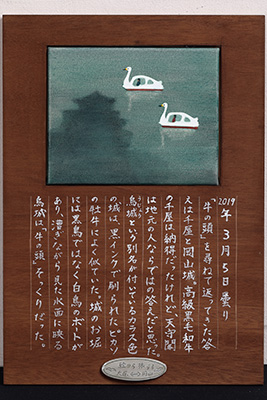 2019年3月5日曇り
「牛の頭」を尋ねて返ってきた答
えは千屋と岡山城、高級黒毛和牛
の千屋は納得だったけれど、天守閣
は地元の人ならではの答えだと思った。
烏城という別名が付いているカラス色
の城は、黒インクで刷られたピカソ
の牡牛によく似ていた。城のお堀
には黒鳥ではなく白鳥のボートが
あり、漕ぎながら見た水面に映る
烏城は「牛の頭」そっくりだった。